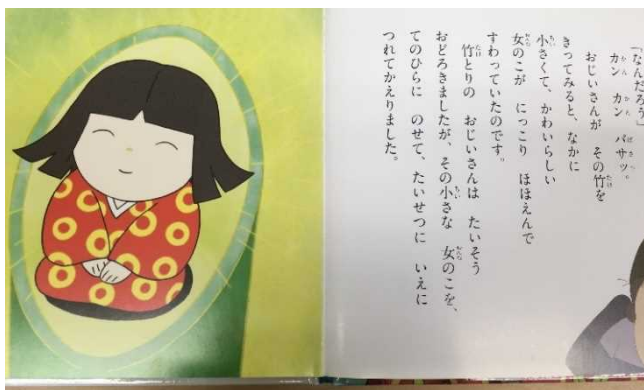 「なんだろう」
カン カン バサッ。
おじいさんが その竹を
きってみると、なかに
小さくて、かわいらしい
女のこが にっこり ほほえんで
すわっていたのです。
竹とりの おじいさんは たいそう
おどろきましたが、その小さな 女のこを、
てのひらに のせて、たいせつに いえに
つれてかえりました。